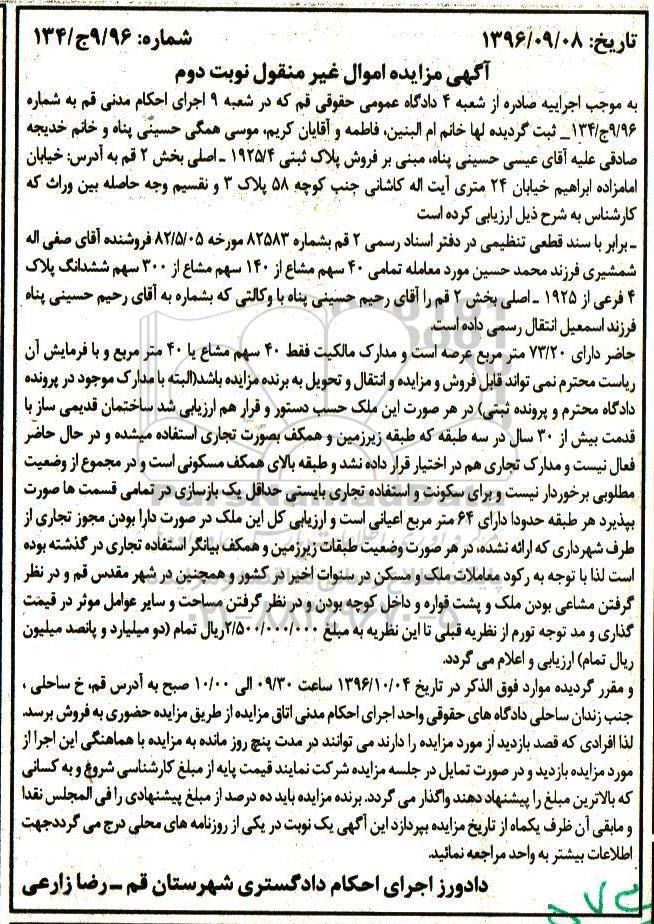 تاریخ: ۱۳۹۶/۰۹/۰۸ شماره: ۹/۹۶ج/۱۳۴
آگهی مزایده اموال غیر منقول نوبت دوم
به موجب اجراییه صادره از شعبه ۴ دادگاه عمومی حقوقی قم که در شعبه ۹ اجرای احکام مدنی قم به شماره
۹/۹۶ج/۱۳۴_ ثبت گردیده لها خانم ام البنین، فاطمه و آقایان کریم، موسی همگی حسینی پناه و خانم خدیجه
صادقی علیه آقای عیسی حسینی پناه، مبنی بر فروش پلاک ثبتی ۱۹۲۵/۴ ـ اصلی بخش ۲ قم به آدرس: خیابان
امامزاده ابراهیم خیابان ۲۴ متری آیت اله کاشانی جنب کوچه ۵۸ پلاک ۳ و تقسیم وجه حاصله بین وراث که
کارشناس به شرح ذیل ارزیابی کرده است
ـ برابر با سند قطعی تنظیمی در دفتر اسناد رسمی ۲ قم بشماره ۸۲۵۸۳ مورخه ۸۲/۵/۰۵ فروشنده آقای صفی اله
شمشیری فرزند محمد حسین مورد معامله تمامی ۴۰ سهم مشاع از ۱۴۰ سهم مشاع از ۳۰۰ سهم ششدانگ پلاک
۴ فرعی از ۱۹۲۵ ـ اصلی بخش ۲ قم را آقای رحیم حسینی پناه با وکالتی که بشماره به آقای رحیم حسینی پناه
فرزند اسمعیل انتقال رسمی داده است.
حاضر دارای ۷۳/۲۰ متر مربع عرصه است و مدارک مالکیت فقط ۴۰ سهم مشاع یا ۴۰ متر مربع و با فرمایش آن
ریاست محترم نمی تواند قابل فروش و مزایده و انتقال و تحویل به برنده مزایده باشد(البته با مدارک موجود در پرونده
دادگاه محترم و پرونده ثبتی) در هر صورت این ملک حسب دستور و قرار هم ارزیابی شد ساختمان قدیمی ساز با
قدمت بیش از ۳۰ سال در سه طبقه که طبقه زیرزمین و همکف بصورت تجاری استفاده میشده و در حال حاضر
فعال نیست و مدارک تجاری هم در اختیار قرار داده نشد و طبقه بالای همکف مسکونی است و در مجموع از وضعیت
مطلوبی برخوردار نیست و برای سکونت و استفاده تجاری بایستی حداقل یک بازسازی در تمامی قسمت ها صورت
بپذیرد هر طبقه حدودا دارای ۶۴ متر مربع اعیانی است و ارزیابی کل این ملک در صورت دارا بودن مجوز تجاری از
طرف شهرداری که ارائه نشده، در هر صورت وضعیت طبقات زیرزمین و همکف بیانگر استفاده تجاری در گذشته بوده
است لذا با توجه به رکود معاملات ملک و مسکن در سنوات اخیر در کشور و همچنین در شهر مقدس قم و در نظر
گرفتن مشاعی بودن ملک و پشت قواره و داخل کوچه بودن و در نظر گرفتن مساحت و سایر عوامل موثر در قیمت
گذاری و مد توجه تورم از نظریه قبلی تا این نظریه به مبلغ ۲/۵۰۰/۰۰۰/۰۰۰ریال تمام (دو میلیارد و پانصد میلیون
ریال تمام) ارزیابی و اعلام می گردد.
و مقرر گردیده موارد فوق الذکر در تاریخ ۱۳۹۶/۱۰/۰۴ ساعت ۰۹/۳۰ الی ۱۰/۰۰ صبح به آدرس قم، خ ساحلی ،
جنب زندان ساحلی دادگاه های حقوقی واحد اجرای احکام مدنی اتاق مزایده از طریق مزایده حضوری به فروش برسد.
لذا افرادی که قصد بازدید از مورد مزایده را دارند می توانند در مدت پنج روز مانده به مزایده با هماهنگی این اجرا از
مورد مزایده بازدید و در صورت تمایل در جلسه مزایده شرکت نمایند قیمت پایه از مبلغ کارشناسی شروع و به کسانی
که بالاترین مبلغ را پیشنهاد دهند واگذار می گردد. برنده مزایده باید ده درصد از مبلغ پیشنهادی را فی المجلس نقدا
و مابقی آن ظرف یکماه از تاریخ مزایده بپردازد این آگهی یک نوبت در یکی از روزنامه های محلی درج می گرددجهت
اطلاعات بیشتر به واحد مراجعه نمائید.
دادورز اجرای احکام دادگستری شهرستان قم ـ رضا زارعی
ParsNamadData
۰۲۱-۸۸۳۴۹۶۷۰-۵